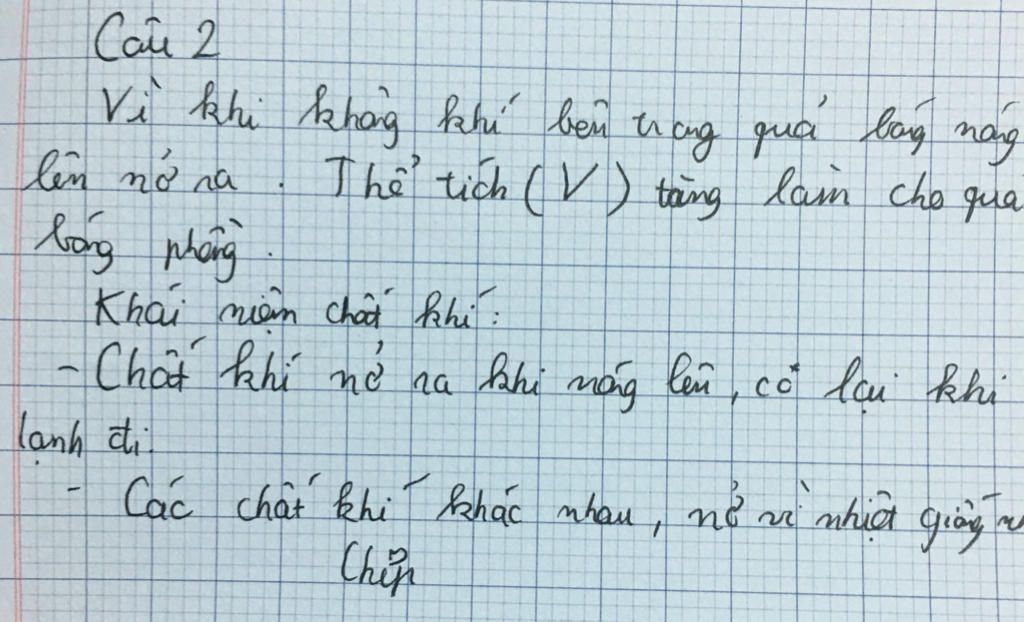 Câu 2
Vì khi không khí bên trong quả bóng nóng
lên nở ra. Thể tích (V) tăng làm cho quả
bóng phồng.
Khái niệm chất khí:
- Chất khí nở ra khi nóng lên, co lại khi
lạnh đi.
- Các chất khí khác nhau, nở vì nhiệt giống